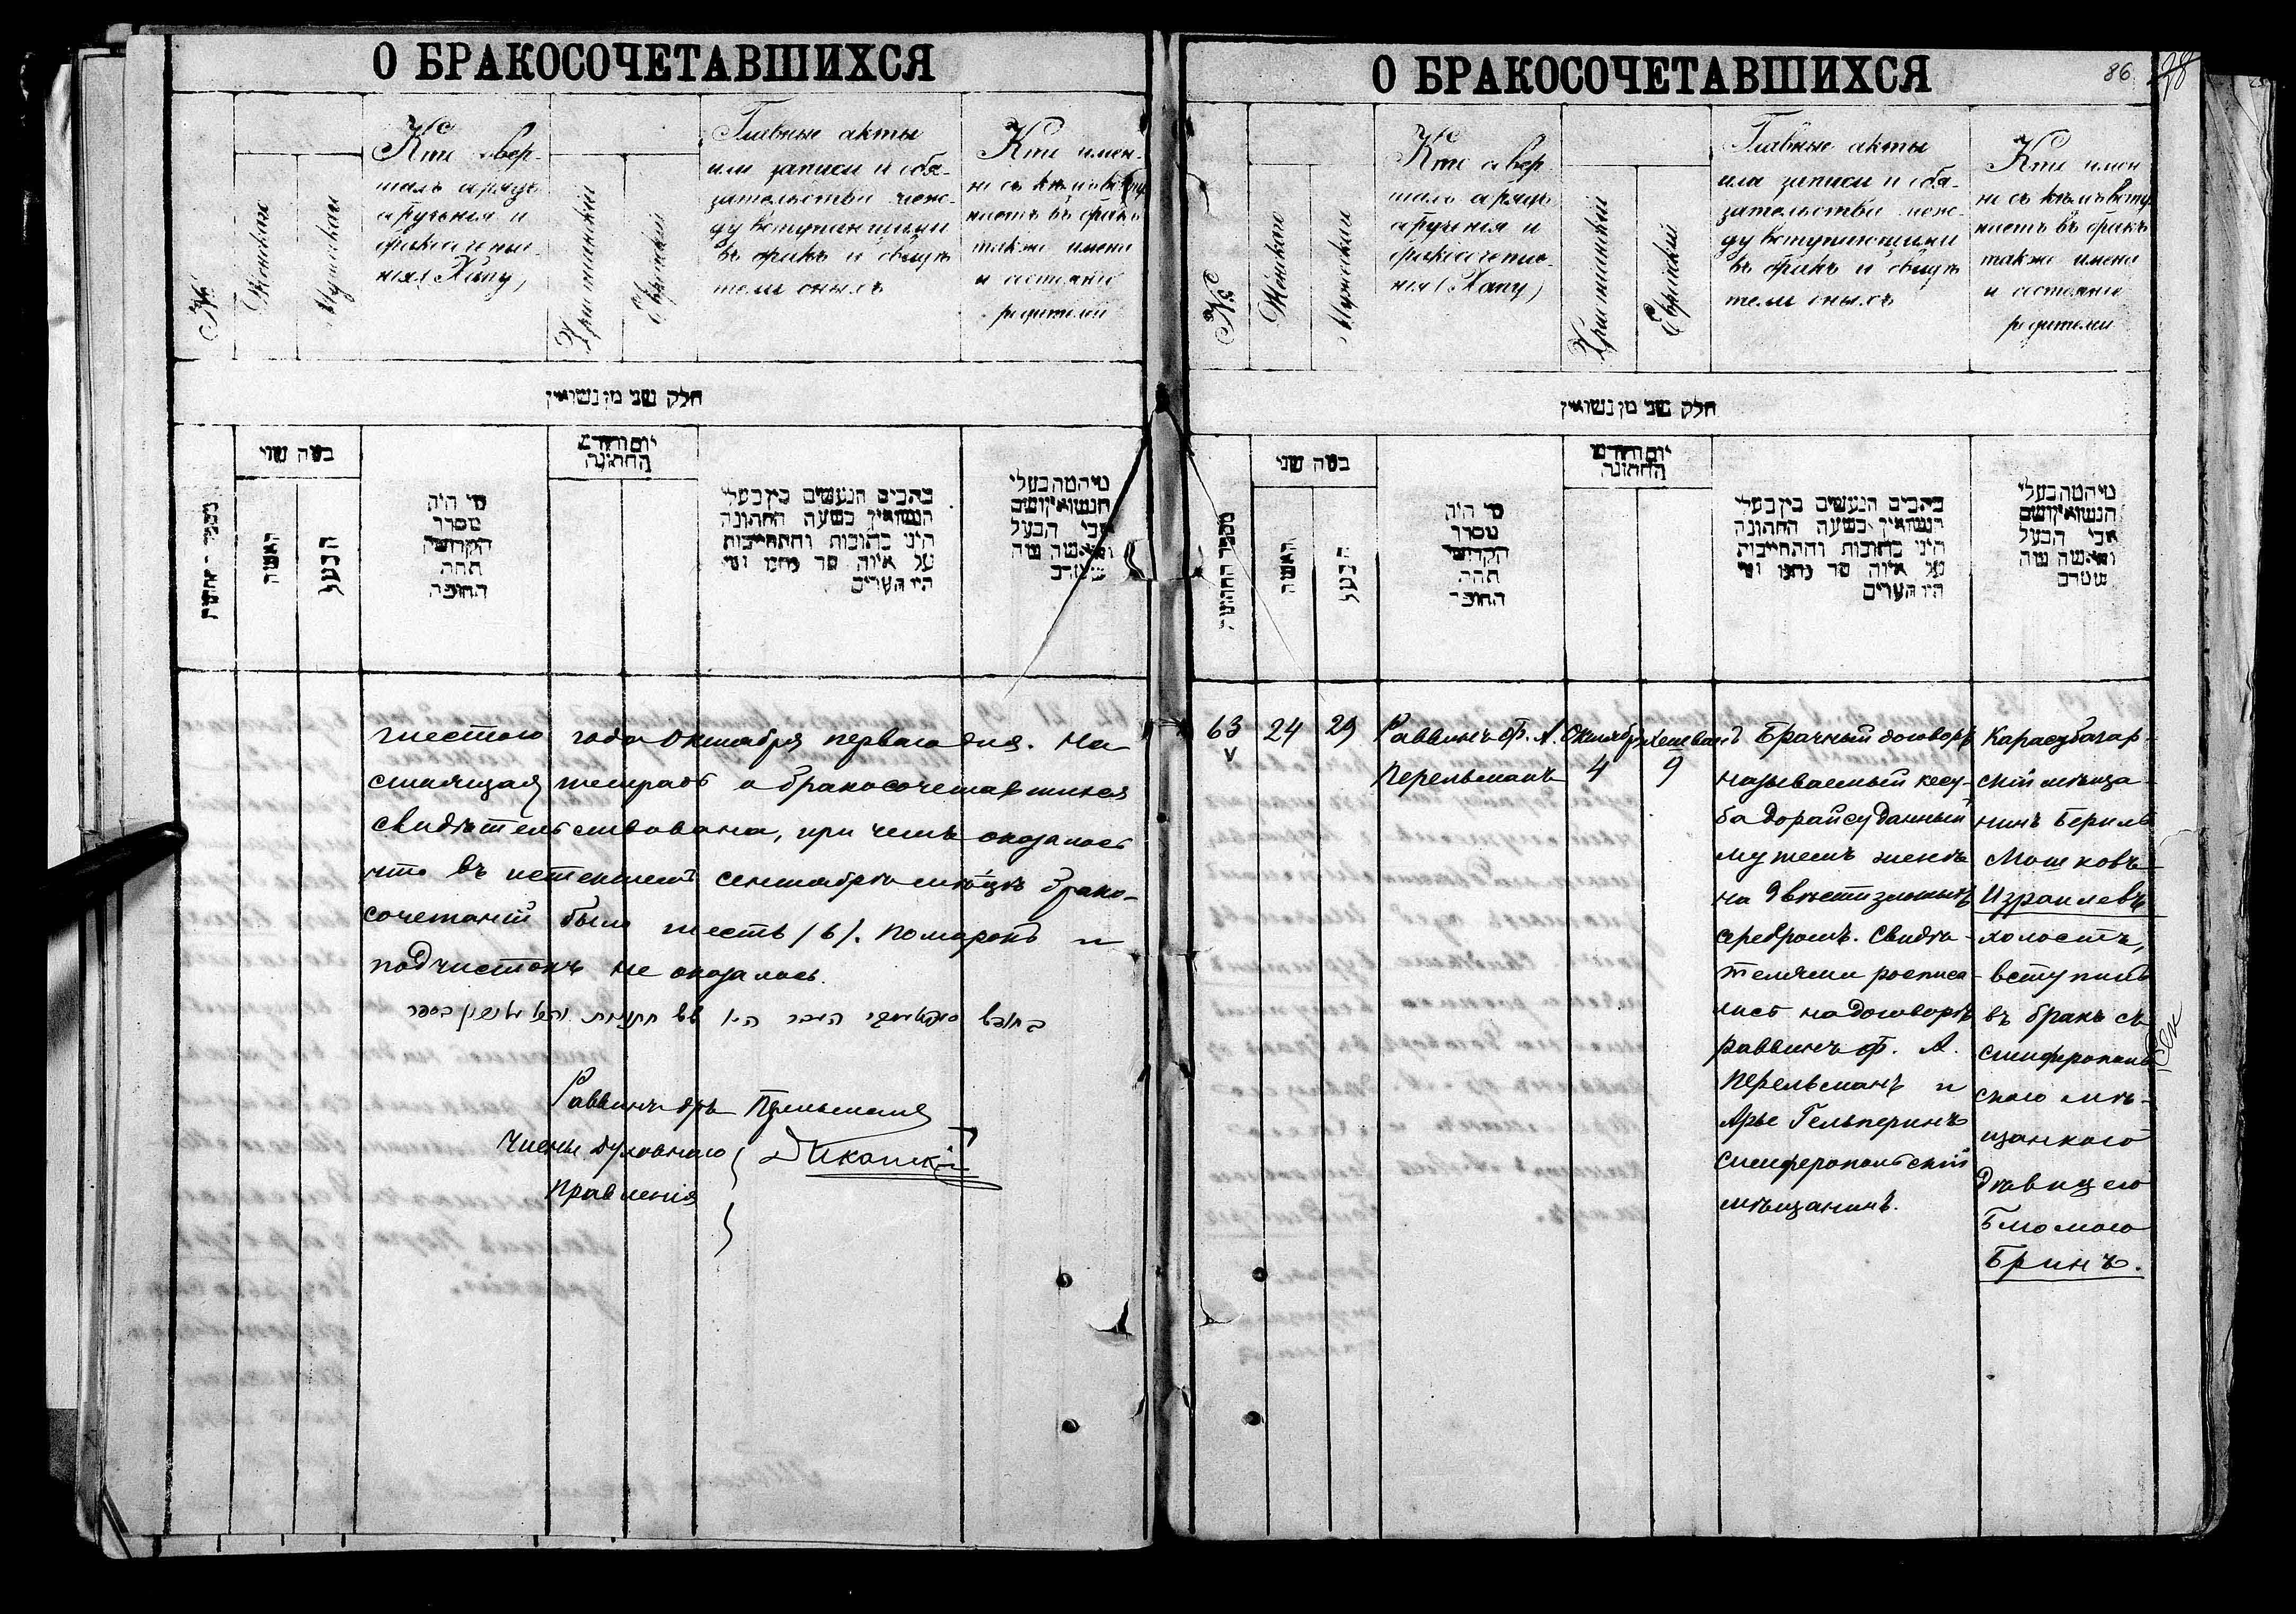 О БРАКОСОЧЕТАВШИХСЯ
№
Женская
Мужская
Кто совер-
шалъ обрядъ
обрученія и
бракосочета-
нія (Хупу)
Христіанскій
Еврейскій
Главные акты
или записи и обя-
зательства меж-
ду вступающими
въ бракъ и свидѣ
тели оныхъ
Кто имен-
но съ кѣмъ всту
паетъ въ бракъ
также имена
и состояніе
родителей
חלק שני מן נשואין
כמה שני
האשה
הבעל
מי היה
מסדר
הקדושין
תחת
החופה
יום וחודש
החתונה
כתבים הנעשים בין בעלי
הנשואין בשעת החתונה
היינו כתובות והתחייבות
על איזה סך נתנו ומי
היו העדים
шестого года Октября перваго дня. На-
стоящая тетрадь о бракосочетавшихся
свидѣтельствована, при чемъ оказалось
что въ истекшемъ сентябрѣ мѣсяцѣ брако-
сочетаній было шесть /6/. Помарокъ и
подчистокъ не оказалось.
Раввинъ др. Перельманъ
Члены духовнаго
правленія
О БРАКОСОЧЕТАВШИХСЯ
86
28
№
Женская
Мужская
Кто совер
шалъ обрядъ
обрученія и
бракосочета-
нія (Хупу)
Христіанскій
Еврейскій
Главные акты
или записи и обя-
зательства меж-
ду вступающими
въ бракъ и свидѣ
тели оныхъ
Кто имен
но съ кѣмъ всту
паетъ въ бракъ
также имена
и состояніе
родителей
חלק שני מן נשואין
מספר החתונות
כמה שני
האשה
הבעל
מי היה
מסדר
הקדושין
תחת
החופה
יום וחודש
החתונה
כתבים הנעשים בין בעלי
הנשואין בשעת החתונה
היינו כתובות והתחייבות
על איזה סך נתנו ומי
היו העדים
63 24 29
Раввинъ Ф. А.
Перельманъ
Октябрь
4
Хешванъ
9
Брачный договоръ
называемый кесу-
ба дорайсу данный
мужемъ женѣ
на двѣсти злотыхъ
серебромъ. Свидѣ-
телями росписа
лись на договорѣ
раввинъ Ф. А.
Перельманъ и
Арье Гельперинъ
симферопольскій
мѣщанинъ.
Карасубазар-
скій мѣща-
нинъ Берилъ
Мошковъ
Израилевъ
холостъ,
вступилъ
въ бракъ съ
симферополь
скою мѣ-
щанкою
дѣвицею
Блюмою
Бринъ.